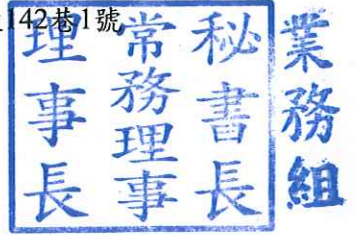 142巷1號
業務組
秘書長
常務理事
理事長